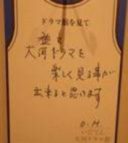 ドラマ館を見て
益々
大河ドラマを
楽しく見る事が
出来ると思います
O.M.